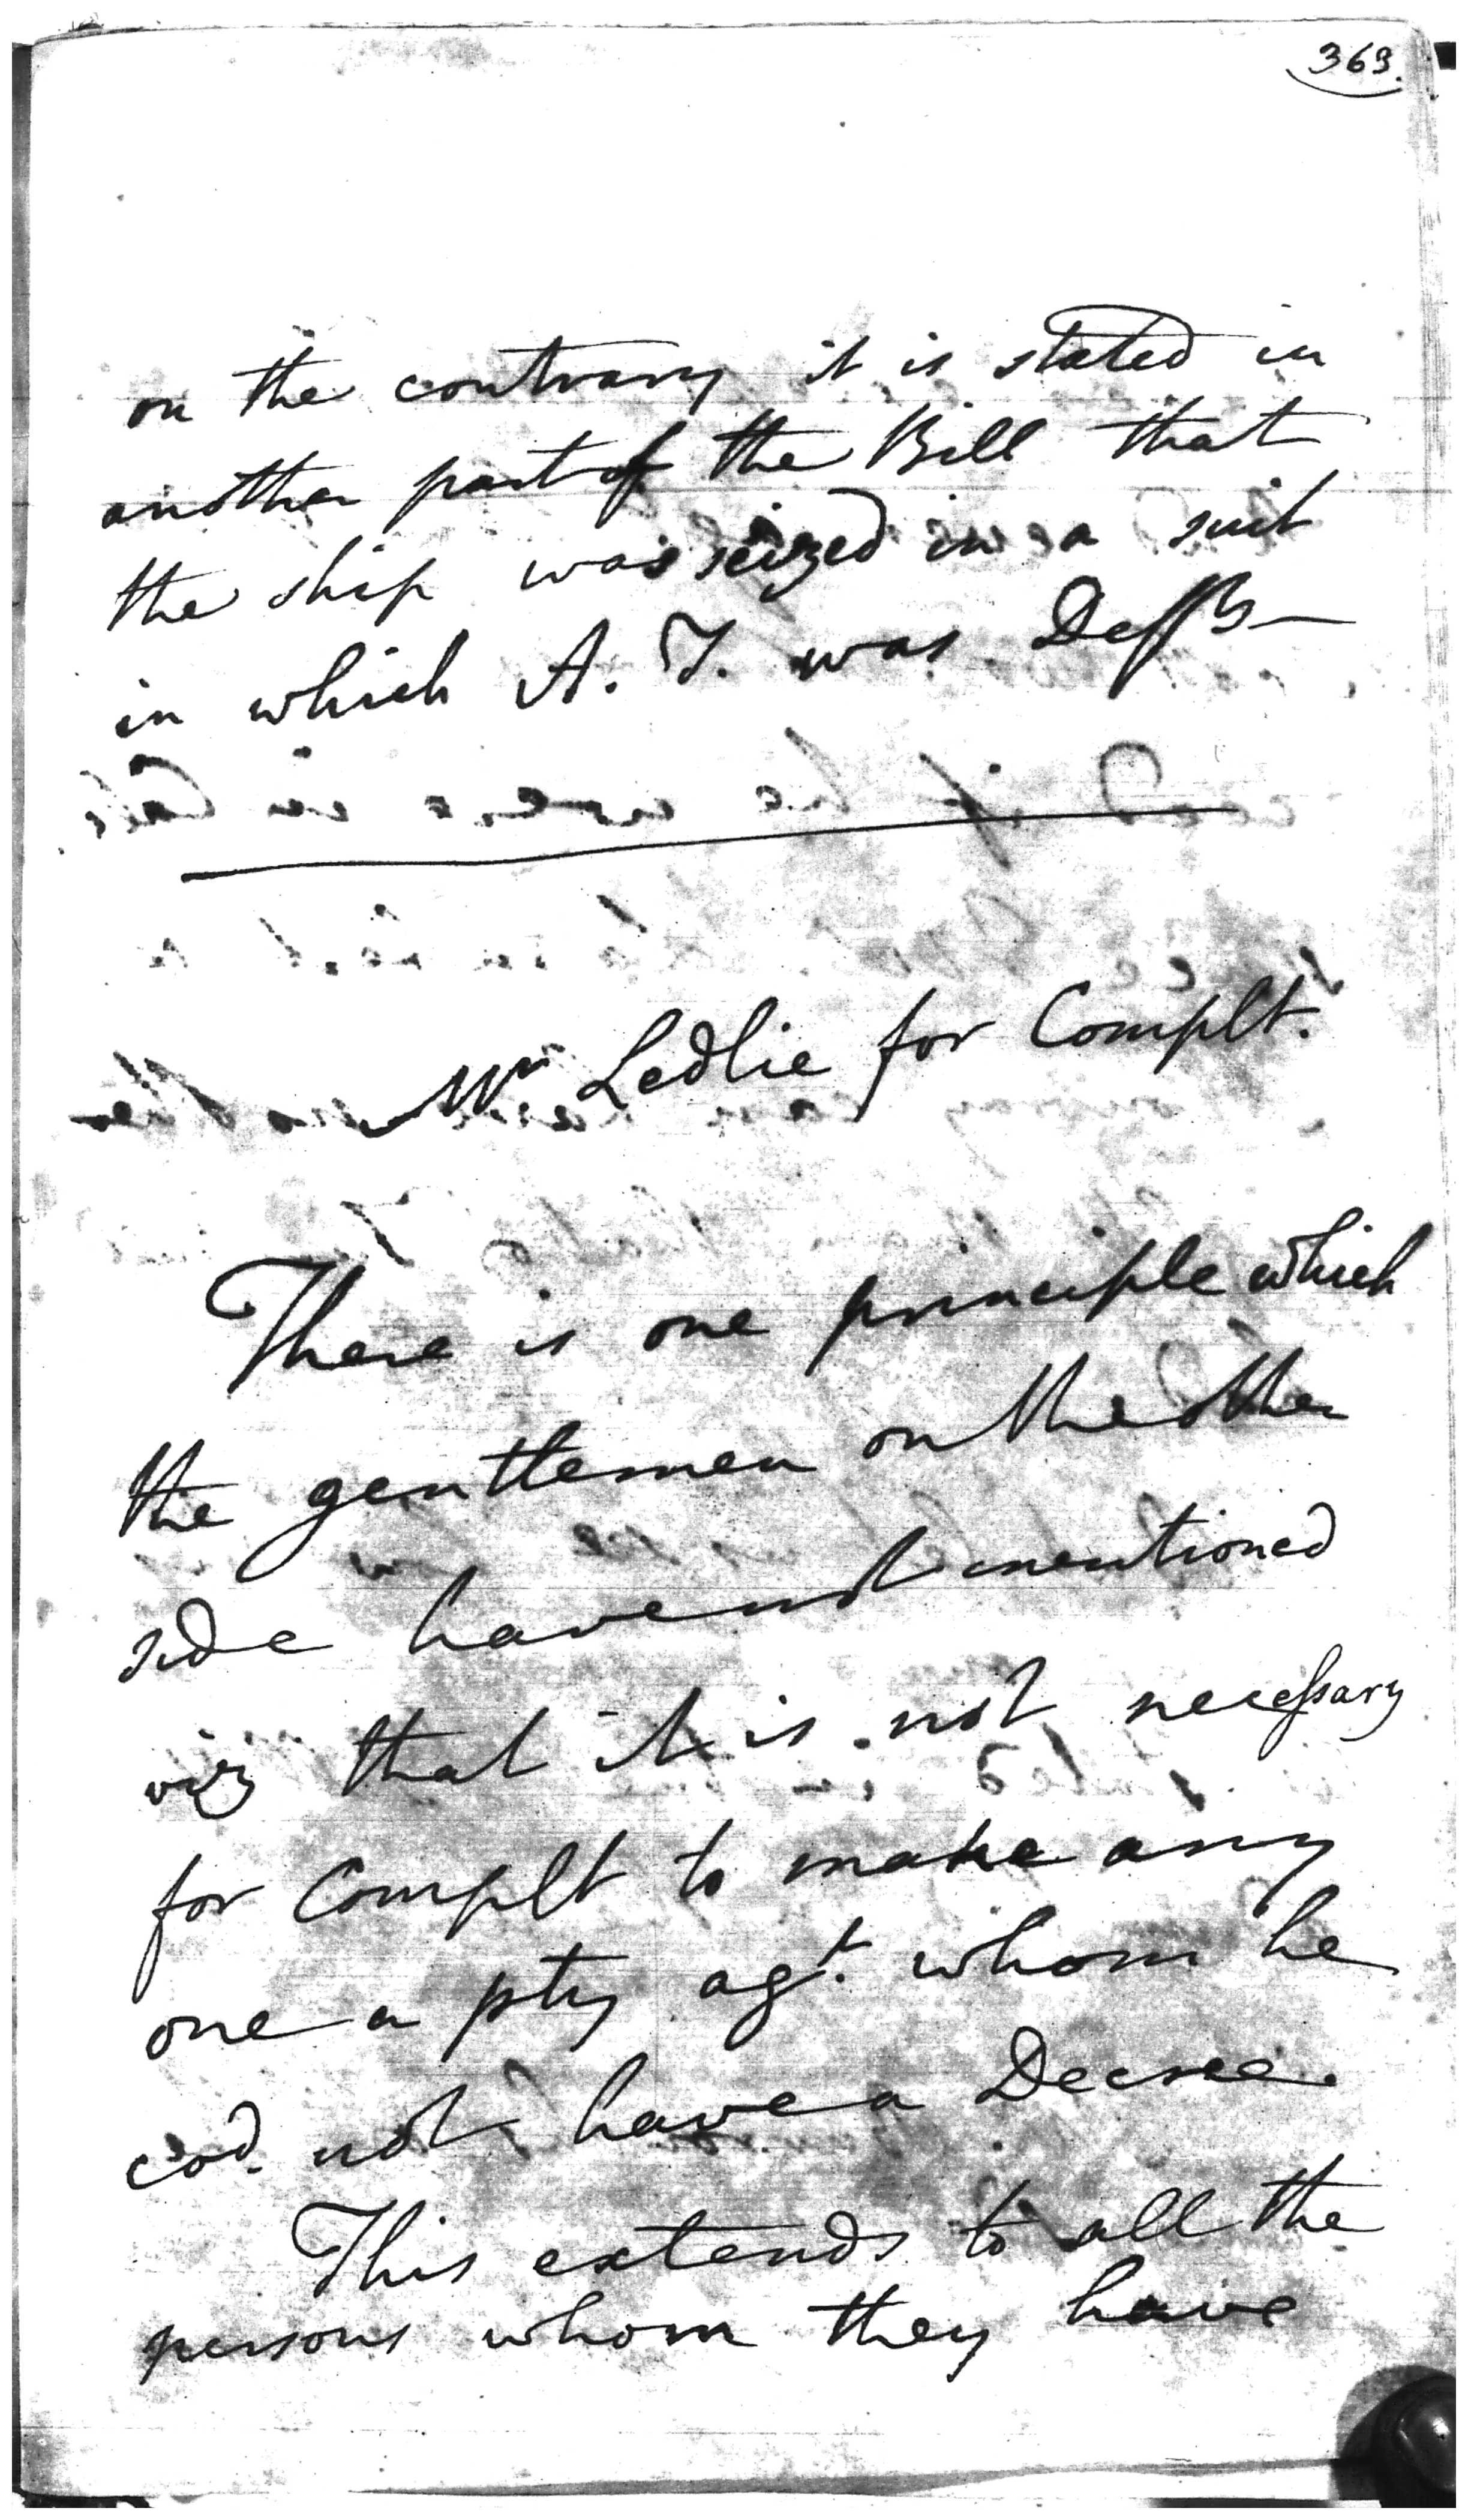 363.
on the contrary it is stated in
another part of the Bill that
the ship was seized in a suit
in which A. T. was Deft
Mr Ledlie for Complt.
There is one principle which
the gentlemen on the other
side have not mentioned
viz that it is not necessary
for Complt to make any
one a pty agt. whom he
cod. not have a Decree.
This extends to all the
persons whom they have